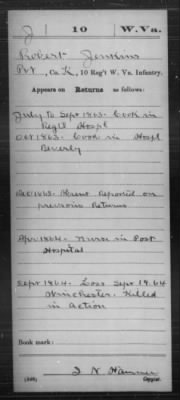 J 10 W.Va.
Robert Jenkins
Pvt, Co. K, 10 Reg't W. Va. Infantry.
Appears on Returns as follows:
July to Sept 1863. Cook in
Reg'l Hospl
Oct 1863. Cook in Hospl
Beverly
Dec 1863. Absent Reported on
previous Returns
Apr 1864. Nurse in Post
Hospital
Sept 1864. Loss Sept 19.64
Winchester. Killed
in action
Book mark:
(546) Copyist.